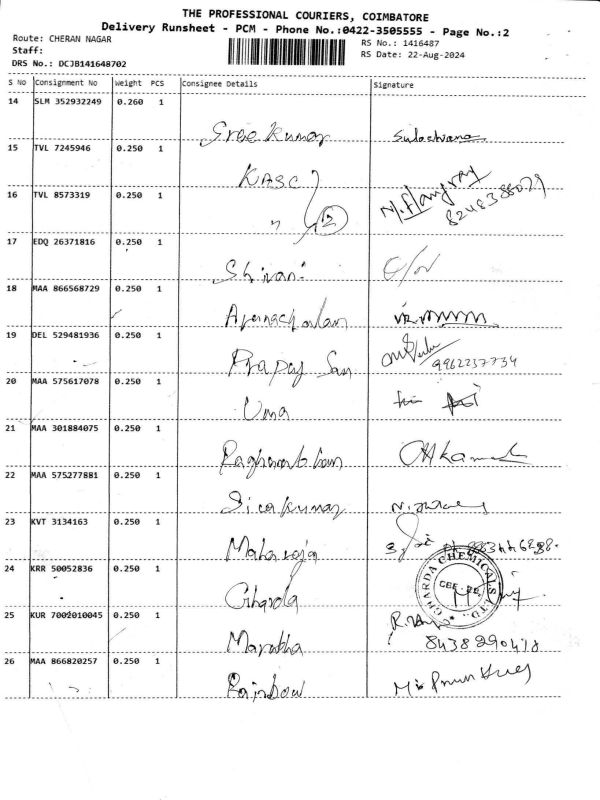 THE PROFESSIONAL COURIERS, COIMBATORE
Delivery Runsheet - PCM - Phone No.:0422-3505555 - Page No.:2
Route: CHERAN NAGAR
RS No.: 1416487
Staff:
RS Date: 22-Aug-2024
DRS No.: DCJB141648702
S No Consignment No Weight PCS Consignee Details Signature
14 SLM 352932249 0.260 1
Sree Kumar Sulochana
15 TVL 7245946 0.250 1
KASC
16 TVL 8573319 0.250 1
" 2
17 EDQ 26371816 0.250 1
Shivani
18 MAA 866568729 0.250 1
Arunachalam
19 DEL 529481936 0.250 1
9962237734
20 MAA 575617078 0.250 1
Uma
21 MAA 301884075 0.250 1
22 MAA 575277881 0.250 1
Sivakumar
23 KVT 3134163 0.250 1
Maharaja
24 KRR 50052836 0.250 1
Gharda
GHARDA CHEMICALS LTD.
25 KUR 7002010045 0.250 1
8438290418
26 MAA 866820257 0.250 1
Rainbow